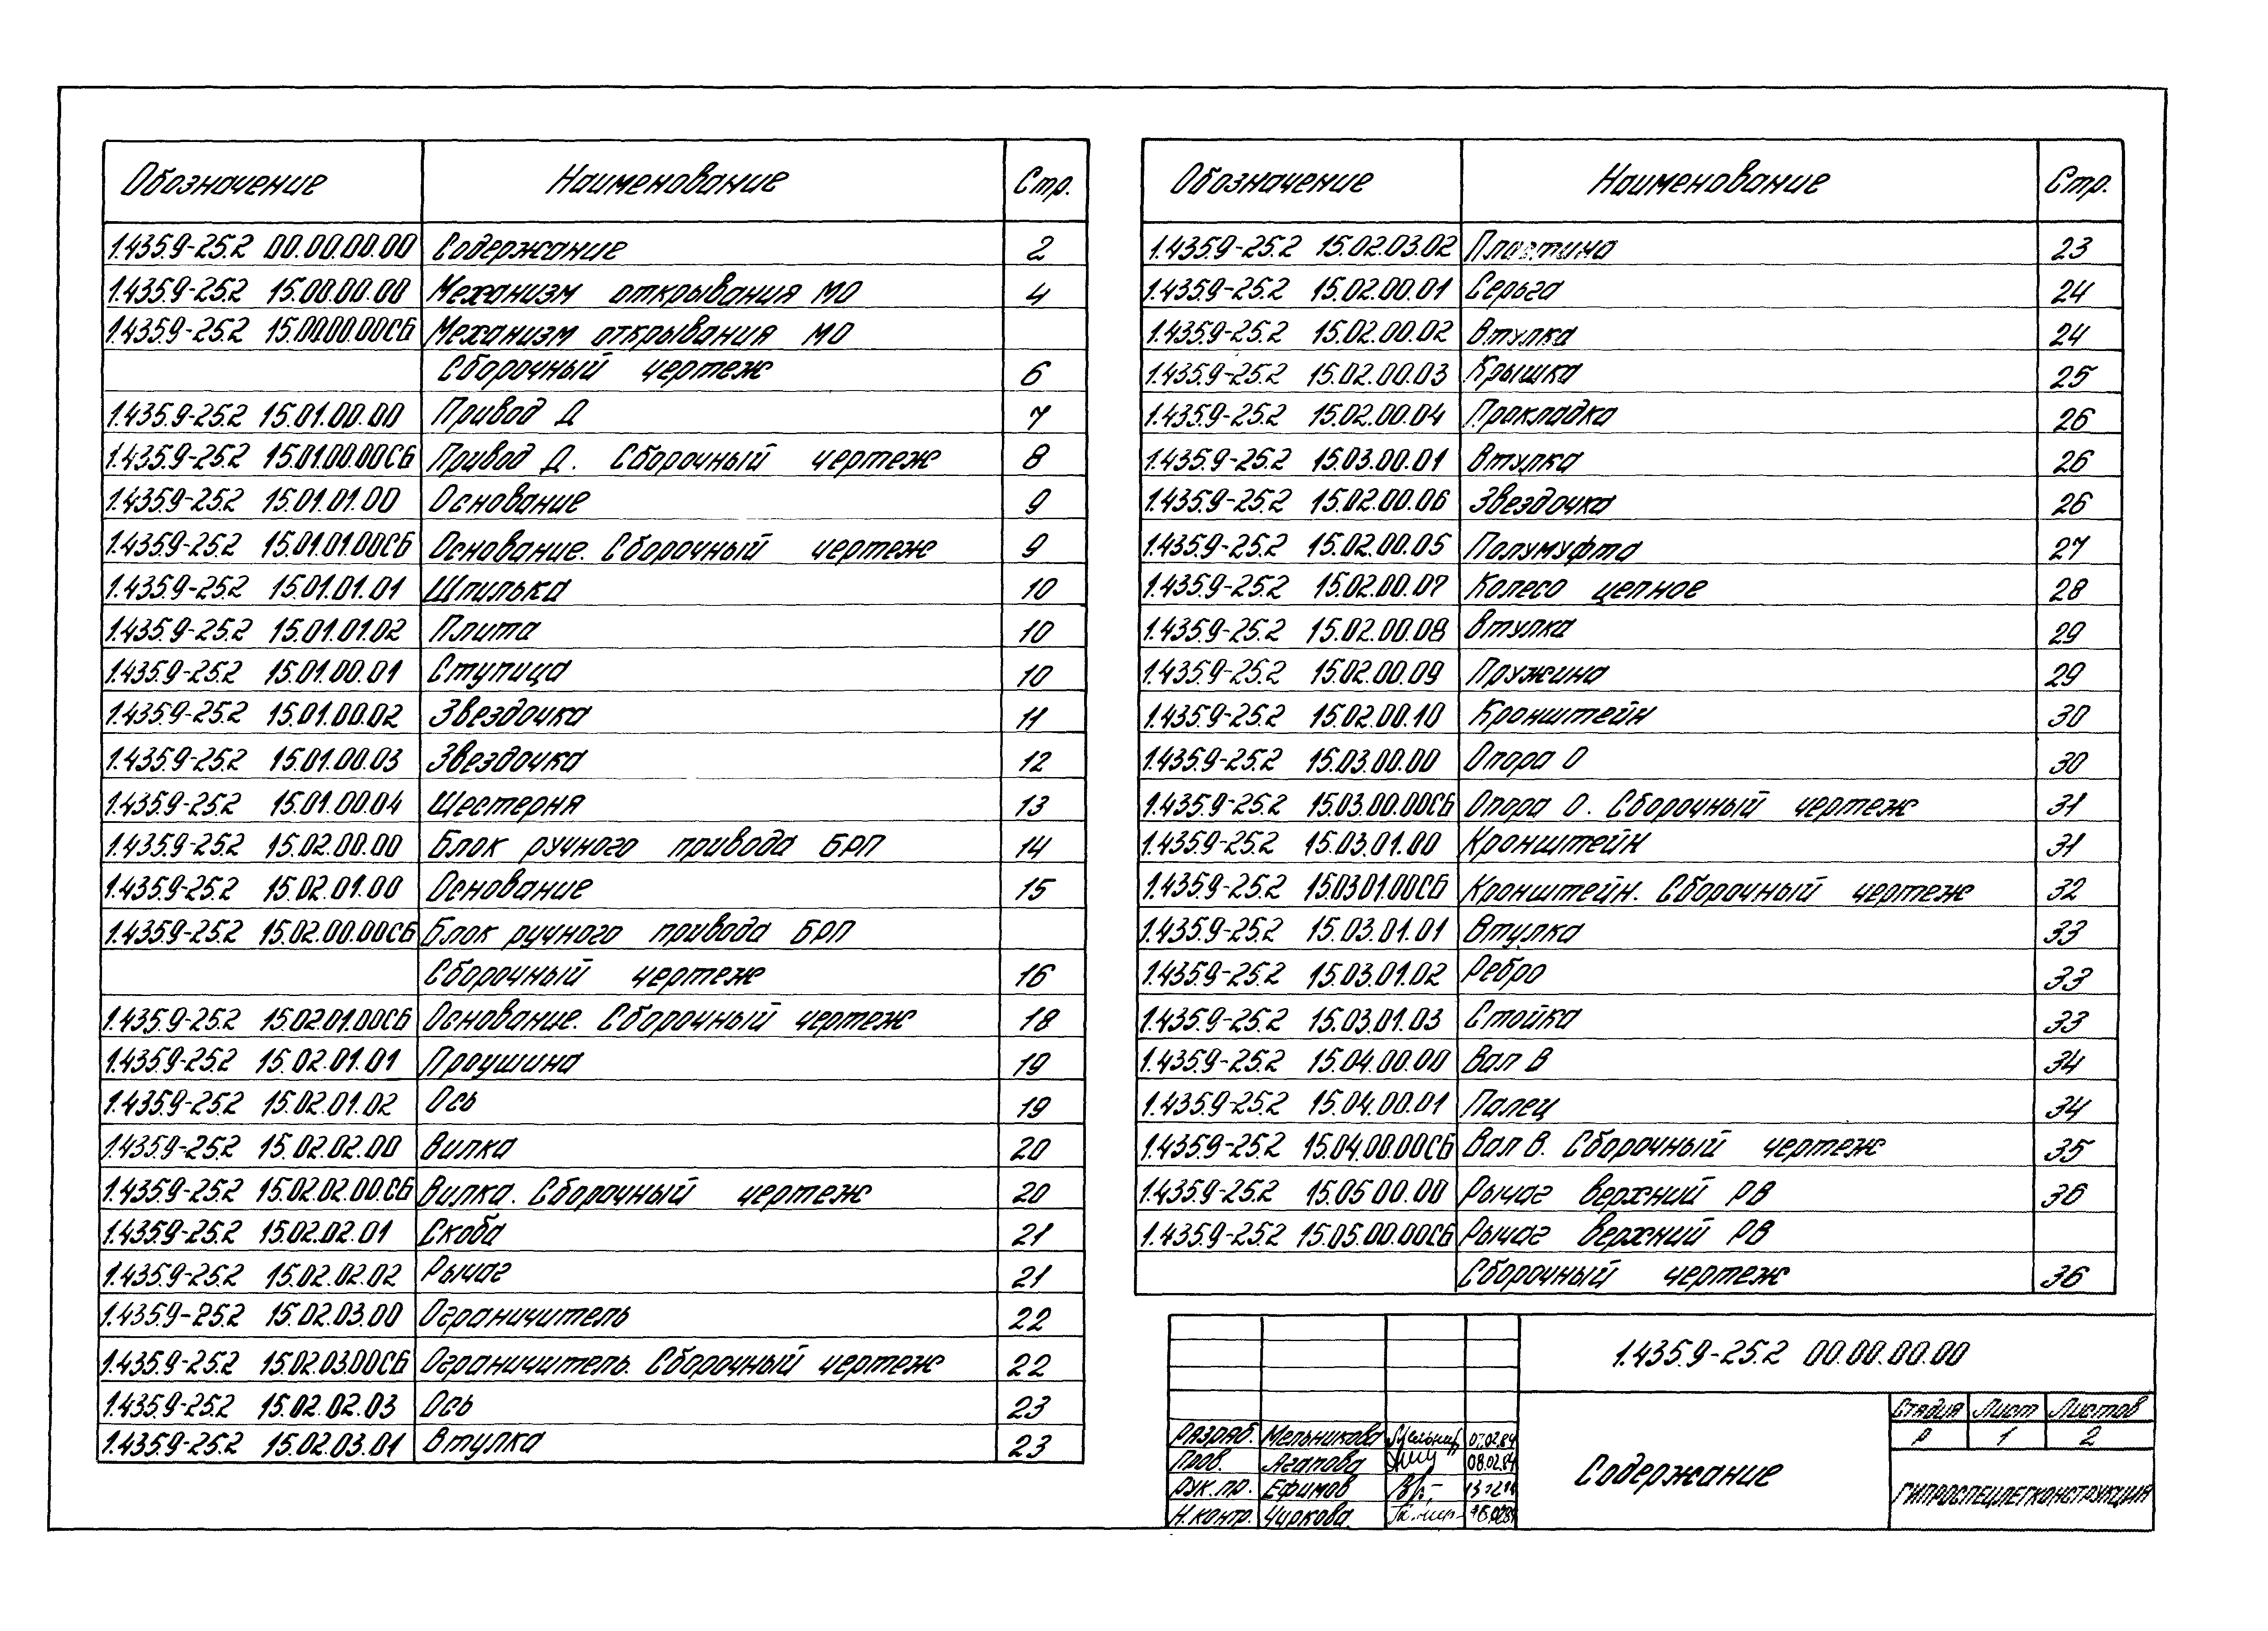 Обозначение Наименование Стр.
1.435.9-25.2 00.00.00.00 Содержание 2
1.435.9-25.2 15.00.00.00 Механизм открывания МО 4
1.435.9-25.2 15.00.00.00СБ Механизм открывания МО
Сборочный чертеж 6
1.435.9-25.2 15.01.00.00 Привод Д 7
1.435.9-25.2 15.01.00.00СБ Привод Д. Сборочный чертеж 8
1.435.9-25.2 15.01.01.00 Основание 9
1.435.9-25.2 15.01.01.00СБ Основание. Сборочный чертеж 9
1.435.9-25.2 15.01.01.01 Шпилька 10
1.435.9-25.2 15.01.01.02 Плита 10
1.435.9-25.2 15.01.00.01 Ступица 10
1.435.9-25.2 15.01.00.02 Звездочка 11
1.435.9-25.2 15.01.00.03 Звездочка 12
1.435.9-25.2 15.01.00.04 Шестерня 13
1.435.9-25.2 15.02.00.00 Блок ручного привода БРП 14
1.435.9-25.2 15.02.01.00 Основание 15
1.435.9-25.2 15.02.00.00СБ Блок ручного привода БРП
Сборочный чертеж 16
1.435.9-25.2 15.02.01.00СБ Основание. Сборочный чертеж 18
1.435.9-25.2 15.02.01.01 Проушина 19
1.435.9-25.2 15.02.01.02 Ось 19
1.435.9-25.2 15.02.02.00 Вилка 20
1.435.9-25.2 15.02.02.00.СБ Вилка. Сборочный чертеж 20
1.435.9-25.2 15.02.02.01 Скоба 21
1.435.9-25.2 15.02.02.02 Рычаг 21
1.435.9-25.2 15.02.03.00 Ограничитель 22
1.435.9-25.2 15.02.03.00СБ Ограничитель. Сборочный чертеж 22
1.435.9-25.2 15.02.02.03 Ось 23
1.435.9-25.2 15.02.03.01 Втулка 23
Обозначение Наименование Стр.
1.435.9-25.2 15.02.03.02 Пластина 23
1.435.9-25.2 15.02.00.01 Серьга 24
1.435.9-25.2 15.02.00.02 Втулка 24
1.435.9-25.2 15.02.00.03 Крышка 25
1.435.9-25.2 15.02.00.04 Прокладка 26
1.435.9-25.2 15.03.00.01 Втулка 26
1.435.9-25.2 15.02.00.06 Звездочка 26
1.435.9-25.2 15.02.00.05 Полумуфта 27
1.435.9-25.2 15.02.00.07 Колесо цепное 28
1.435.9-25.2 15.02.00.08 Втулка 29
1.435.9-25.2 15.02.00.09 Пружина 29
1.435.9-25.2 15.02.00.10 Кронштейн 30
1.435.9-25.2 15.03.00.00 Опора О 30
1.435.9-25.2 15.03.00.00СБ Опора О. Сборочный чертеж 31
1.435.9-25.2 15.03.01.00 Кронштейн 31
1.435.9-25.2 15.03.01.00СБ Кронштейн. Сборочный чертеж 32
1.435.9-25.2 15.03.01.01 Втулка 33
1.435.9-25.2 15.03.01.02 Ребро 33
1.435.9-25.2 15.03.01.03 Стойка 33
1.435.9-25.2 15.04.00.00 Вал В 34
1.435.9-25.2 15.04.00.01 Палец 34
1.435.9-25.2 15.04.00.00СБ Вал В. Сборочный чертеж 35
1.435.9-25.2 15.05.00.00 Рычаг верхний РВ 36
1.435.9-25.2 15.05.00.00СБ Рычаг верхний РВ
Сборочный чертеж 36
1.435.9-25.2 00.00.00.00
Содержание
Стадия Лист Листов
Р 1 2
ГИПРОСПЕЦЛЕГКОНСТРУКЦИЯ
Разраб. Мельникова 07.02.84
Пров. Агапова 08.02.84
Рук.пр. Ефимов
Н.контр. Чиркова